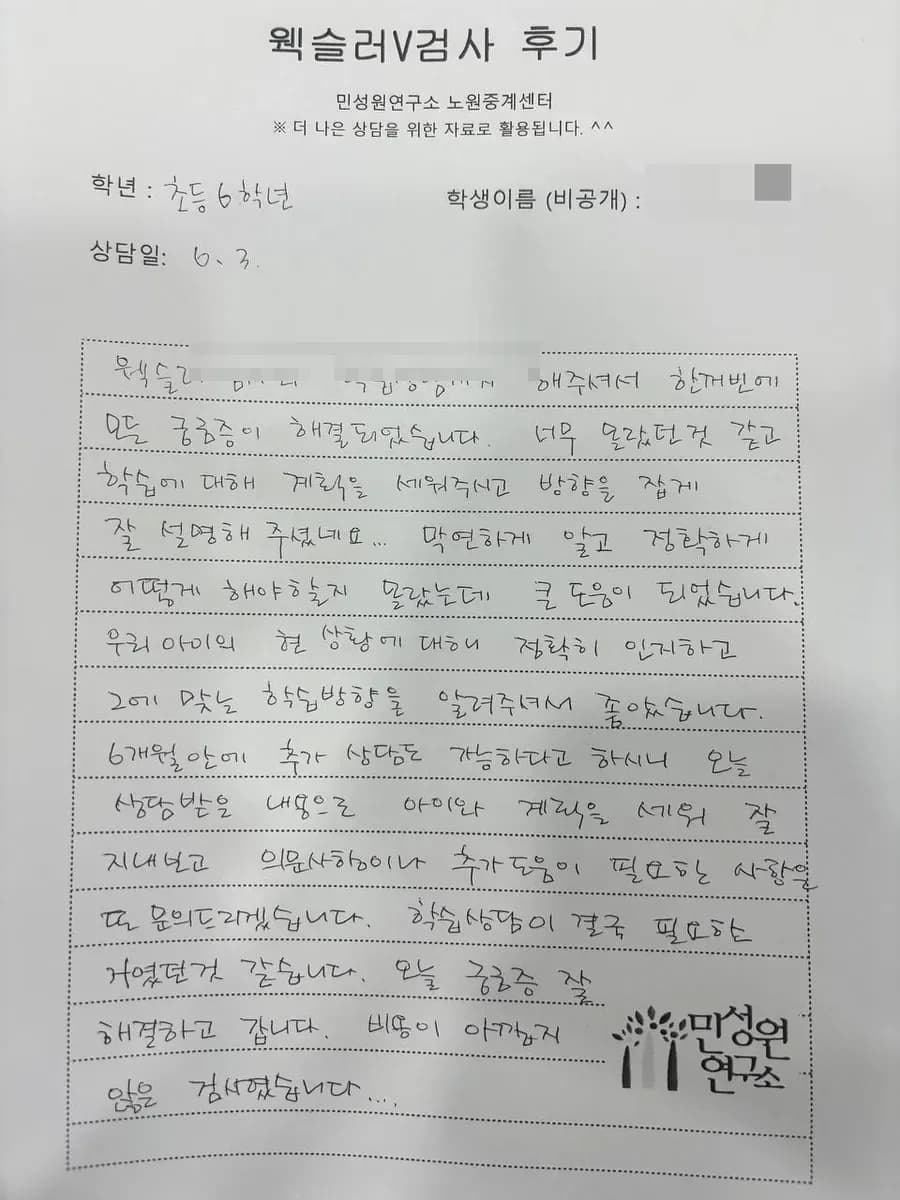 웩슬러V검사 후기
민성원연구소 노원중계센터
※ 더 나은 상담을 위한 자료로 활용됩니다. ^^
학년 : 초등 6학년
학생이름 (비공개) :
상담일: 6. 3.
해주셔서 한꺼번에
모든 궁금증이 해결되었습니다. 너무 몰랐던것 같고
학습에 대해 계획을 세워주시고 방향을 잡게
잘 설명해 주셨네요... 막연하게 알고 정확하게
어떻게 해야할지 몰랐는데 큰 도움이 되었습니다.
우리 아이의 현 상황에 대해 정확히 인지하고
그에 맞는 학습방향을 알려주셔서 좋았습니다.
6개월안에 추가 상담도 가능하다고 하시니 오늘
상담받은 내용으로 아이와 계획을 세워 잘
지내보고 의문사항이나 추가도움이 필요한 사항을
또 문의드리겠습니다. 학습상담이 결국 필요한
거였던것 같습니다. 오늘 궁금증 잘
해결하고 갑니다. 비용이 아깝지
않은 검사였습니다....
민성원
연구소